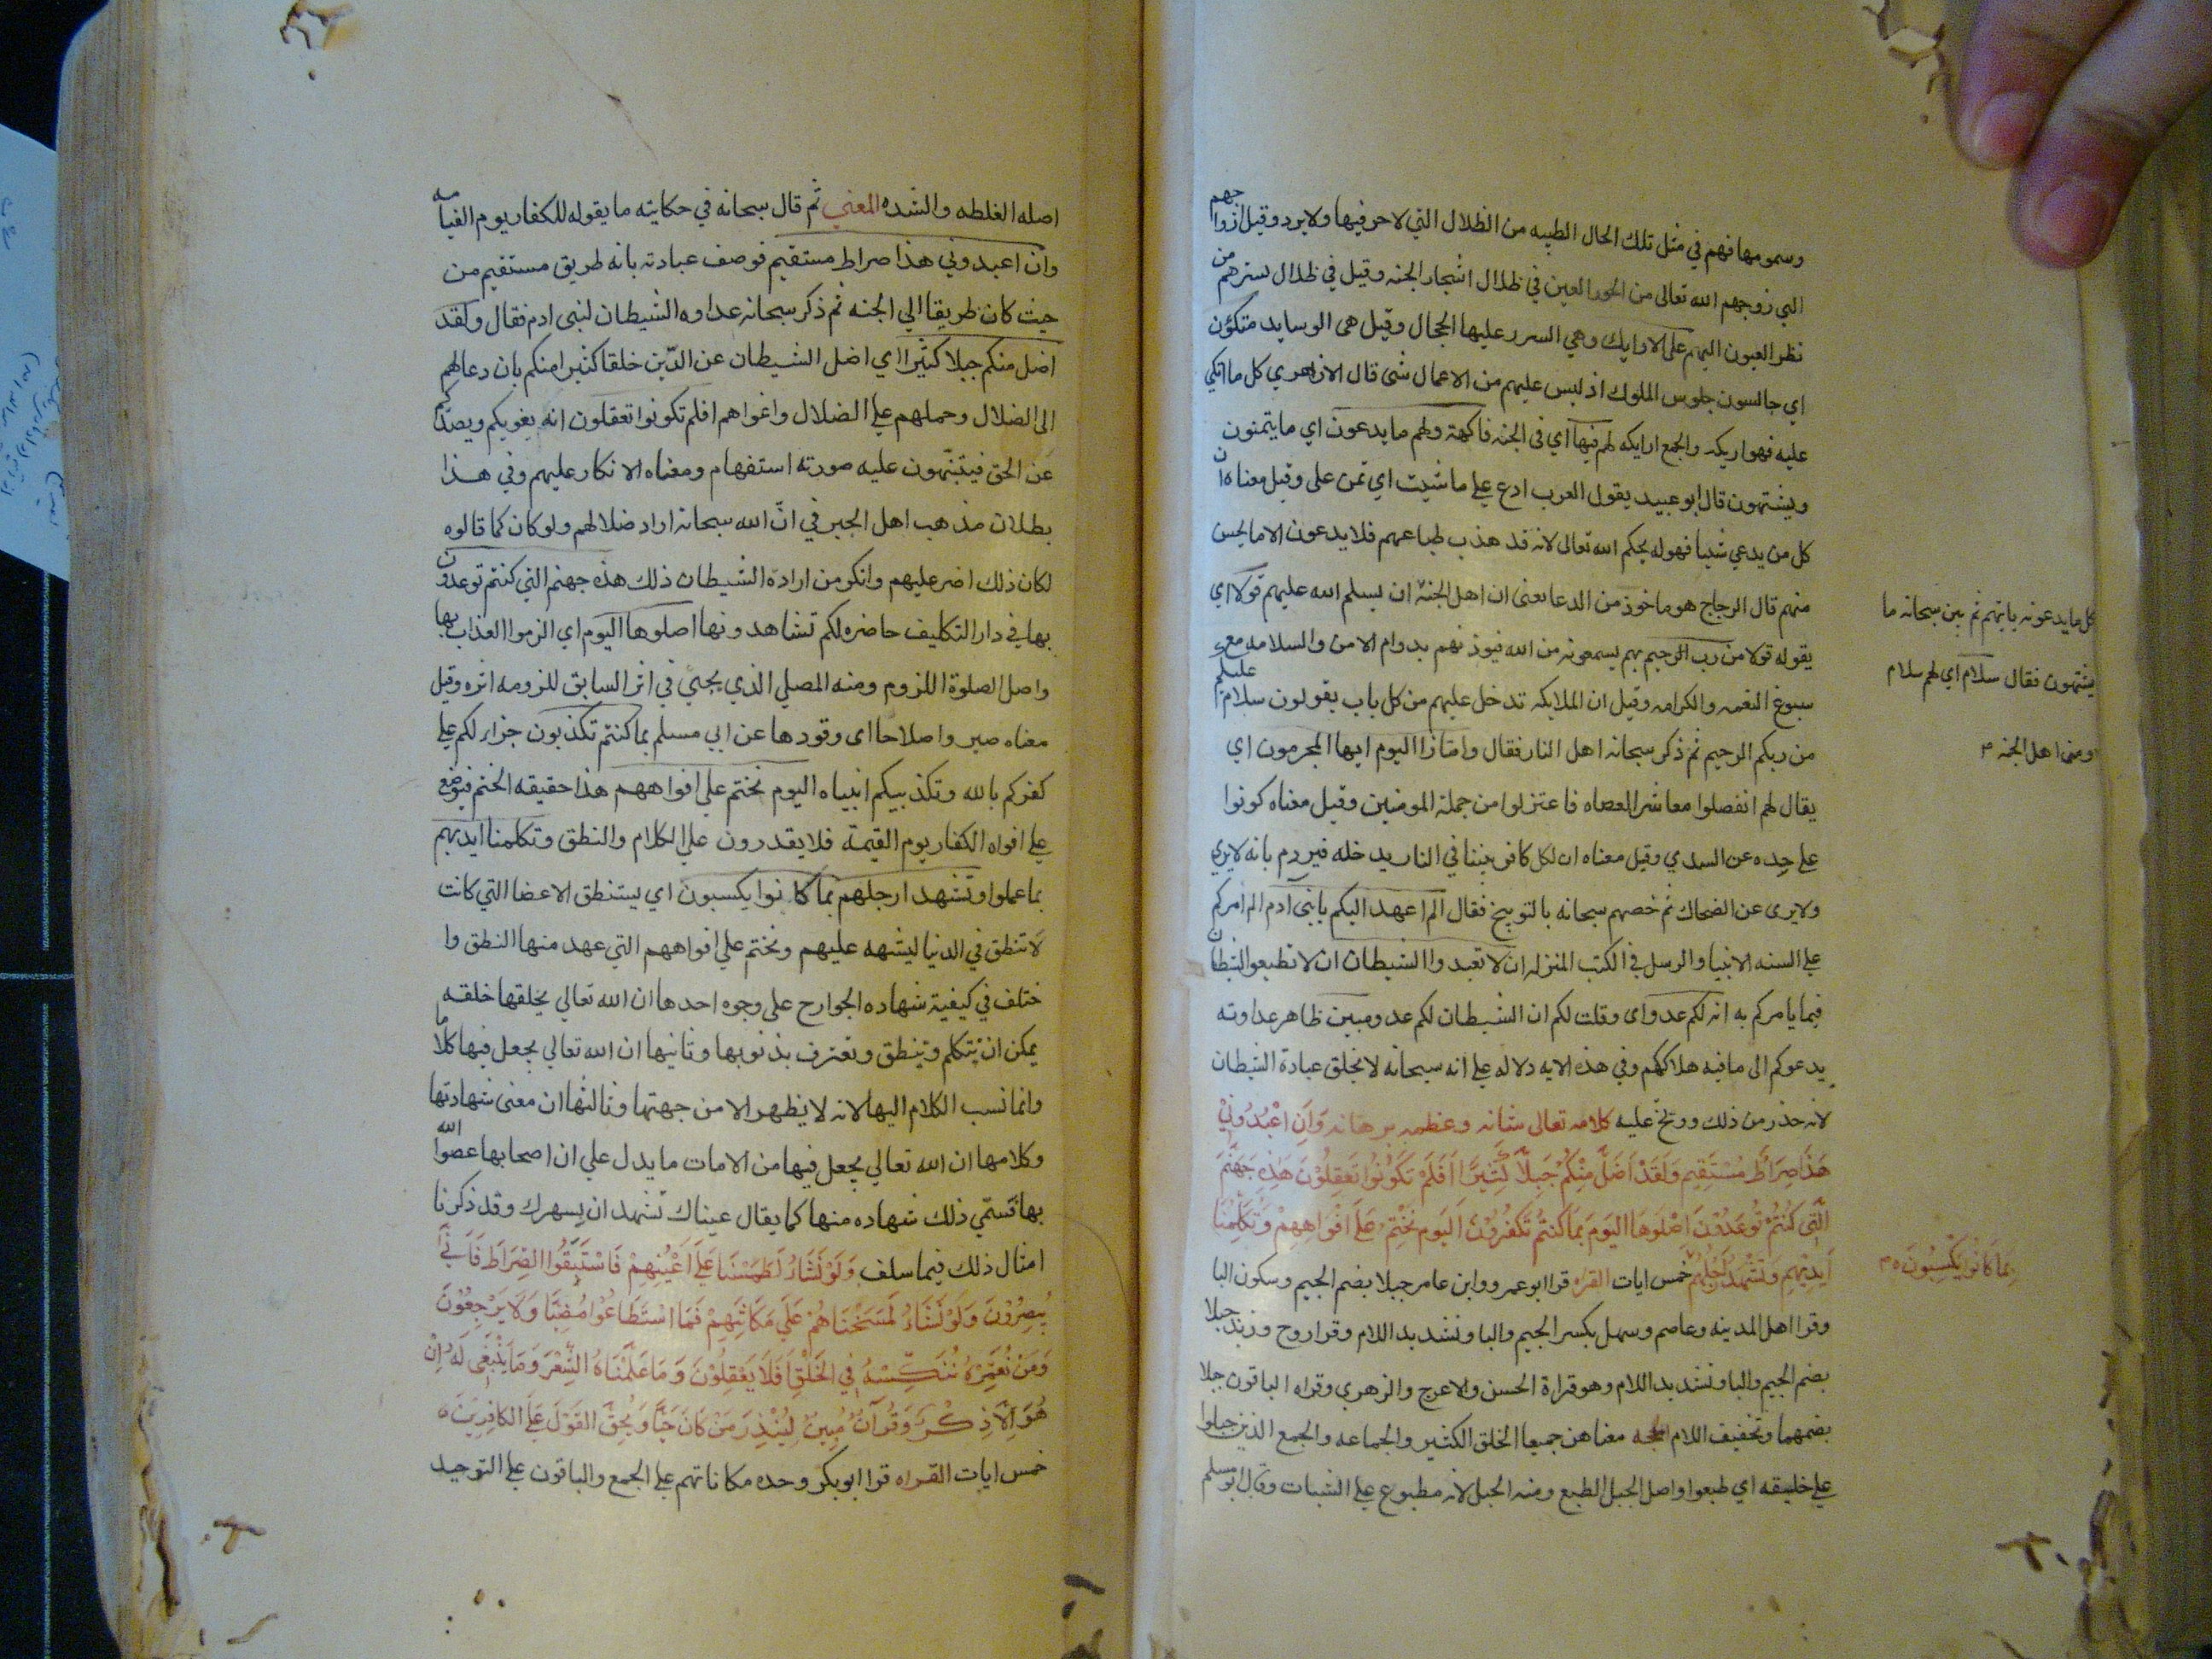 وسمومها فهم في مثل تلك الحال الطيبه من الظلال التي لا حر فيها ولا برد وقيل ازواجهم
التي زوجهم الله تعالى من الحور العين في ظلال اشجار الجنه وقيل في ظلال تسترهم من
نظر العيون اليهم على الارايك وهي السرر عليها الحجال وقيل هي الوسايد متكؤن
اي جالسون جلوس الملوك اذ ليس عليهم من الاعمال شي قال الازهري كل ما اتكي
عليه فهو اريكه والجمع ارايكه لهم فيها اي في الجنه فاكهة ولهم ما يدعون اي ما يتمنون
ويشتهون قال ابو عبيد يقول العرب ادع علي ما شيت اي تمن على وقيل معناه ان
كل من يدعي شيا فهو له بحكم الله تعالى لانه قد هذب طباعهم فلا يدعون الا ما يحسن
منهم قال الزجاج هو ماخوذ من الدعا يعني ان اهل الجنة
كل ما يدعونه ياتيهم ثم بين سبحانه ما
يشتهون فقال سلام اي لهم سلام
ومنى اهل الجنه
ان يسلم الله عليهم قولا اي
يقوله قولا من رب الرحيم بهم يسمعونه من الله فيوذنهم بدوام الامن والسلامه مع
سبوغ النعمه والكرامه وقيل ان الملايكه تدخل عليهم من كل باب يقولون سلام عليكم
من ربكم الرحيم ثم ذكر سبحانه اهل النار فقال وامتازوا اليوم ايها المجرمون اي
يقال لهم انفصلوا معاشر العصاه فاعتزلوا من جملة المومنين وقيل معناه كونوا
علي حده عن السدي وقيل معناه ان لكل كافر بيتا في النار يدخله فيردم بابه لا يري
ولا يرى عن الضحاك ثم خصهم سبحانه بالتوبيخ فقال الم اعهد اليكم يا بني آدم الم امركم
علي السنه الانبيا والرسل في الكتب المنزله ان لا تعبدوا الشيطان ان لا تطيعوا الشيطان
فيما يامركم به انه لكم عدو اى وقلت لكم ان الشيطان لكم عدو مبين ظاهر عداوته
يدعوكم الى ما فيه هلاككم وفي هذه الايه دلاله علي انه سبحانه لا يخلق عبادة الشيطان
لانه حذر من ذلك ووبخ عليه كلامه تعالى شانه وعظمه برهانه وَاَنِ اعْبُدُونِيْ
هَذَا صِرَاطٌ مُسْتَقِيم وَلَقَدْ اَضَلَّ مِنْكُمْ جِبِلاًّ كَثِيْرًا اَفَلَمْ تَكُوْنُوْا تَعْقِلُوْنَ هَذِهِ جَهَنَّمُ
الَّتِى كُنْتُمْ تُوعَدُوْنَ اصْلَوهَا اليَوْمَ بِمَا كُنْتُمْ تَكْفُرُوْنَ اَليَوم نَخْتِمُ عَلَى اَفْوَاهِهِمْ وَتُكَلِّمُنَا
اَيْدِيْهِمْ وَتَشْهَدُ اَرْجُلُهُمْ بِمَا كَانُوا يَكْسِبُوْنَ خمس ايات القراه قرا ابو عمرو وابن عامر جبلا بضم الجيم وسكون البا
وقرا اهل المدينه وعاصم وسهل بكسر الجيم والبا وتشديد اللام وقرا روح وزيد جبلا
بضم الجيم والبا وتشديد اللام وهو قراة الحسن والاعرج والزهري وقراه الباقون جبلا
بضمهما وتخفيف اللام الحجه معناهن جميعا الخلق الكثير والجماعه والجمع الذين جبلوا
علي خليقه اي طبعوا واصل الجبل الطبع ومنه الجبل لانه مطبوع علي الثبات وقال ابو مسلم
اصله الغلظه والشده المعني ثم قال سبحانه في حكايته ما يقوله للكفار يوم القيامه
وان اعبدوني هذا صراط مستقيم فوصف عبادته بانه طريق مستقيم من
حيث كان طريقا الي الجنه ثم ذكر سبحانه عداوه الشيطان لبنى ادم فقال ولقد
اضل منكم جبلا كثيرا اي اضل الشيطان عن الدّين خلقا كثيرا منكم بان دعا لهم
الى الضلال وحملهم علي الضلال واغواهم افلم تكونوا تعقلون انه يغويكم ويصدكم
عن الحق فيتنبّهون عليه صورته استفهام ومعناه الانكار عليهم وفي هذا
بطلان مذهب اهل الجبر في انّ الله سبحانه اراد ضلالهم ولو كان كما قالوه
لكان ذلك اضر عليهم وانكر من ارادة الشيطان ذلك هذه جهنم التي كنتم توعدون
بها في دار التكليف حاضره لكم تشاهدونها اصلوها اليوم اي الزموا العذاب بها
واصل الصلوة اللزوم ومنه المصلي الذي يجئ في اثر السابق للزومه اثره وقيل
معناه صيروا صلاحا اى وقودها عن ابي مسلم بما كنتم تكذبون جزاء لكم علي
كفركم بالله وتكذيبكم انبياه اليوم نختم علي افواههم هذا حقيقه الختم فيوضع
علي افواه الكفار يوم القيمة فلا يقدرون علي الكلام والنطق وتكلمنا ايديهم
بما عملوا وتشهد ارجلهم بما كانوا يكسبون اي يستنطق الاعضا التي كانت
لا تنطق في الدنيا ليشهد عليهم ونختم علي افواههم التي عهد منها النطق وا
ختلف في كيفية شهاده الجوارح على وجوه احدها ان الله تعالي يخلقها خلقه
يمكن ان يتكلم وينطق وتعترف بذنوبها وثانيها ان الله تعالي يجعل فيها كلاما
وانما نسب الكلام اليها لانه لا يظهر الا من جهتها وثالثها ان معنى شهادتها
وكلامها ان الله تعالي يجعل فيها من الامات ما يدل علي ان اصحابها عصوا الله
بها فسمّي ذلك شهاده منها كما يقال عيناك تشهد ان بسهرك وقد ذكرنا
امثال ذلك فيما سلف وَلَوْ نَشَاءُ لَطَمَسْنَا عَلَي اَعْيُنِهِمْ فَاسْتَبَقُوا الصِّرَاطَ فَاَنّىَ
يُبْصِرُوْنَ وَلَوْ نَشَاءُ لَمَسَخْنَاهُمْ عَلَي مَكَانَتِهِمْ فَمَا اسْتَطَاعُوْا مُضِيًّا وَلَا يَرْجِعُوْنَ
وَمَنْ نُعَمِّرْهُ نُنَكِّسْهُ فِي الخَلْقِ اَفَلَا يَعْقِلُوْنَ وَمَا عَلَّمْنَاهُ الشِّعْرَ وَمَا يَنْبَغِى لَهُ اِنْ
هُوَ اِلَّا ذِكْرٌ وَقُرآنٌ مُبِينٌ لِيُنْذِرَ مَنْ كَانَ حَيًّا وَيُحِقَّ القَوْلَ عَلَي الكَافِرِيْنَ
خمس ايات القراه قرا ابو بكر وحده مكاناتهم علي الجمع والباقون علي التوحيد